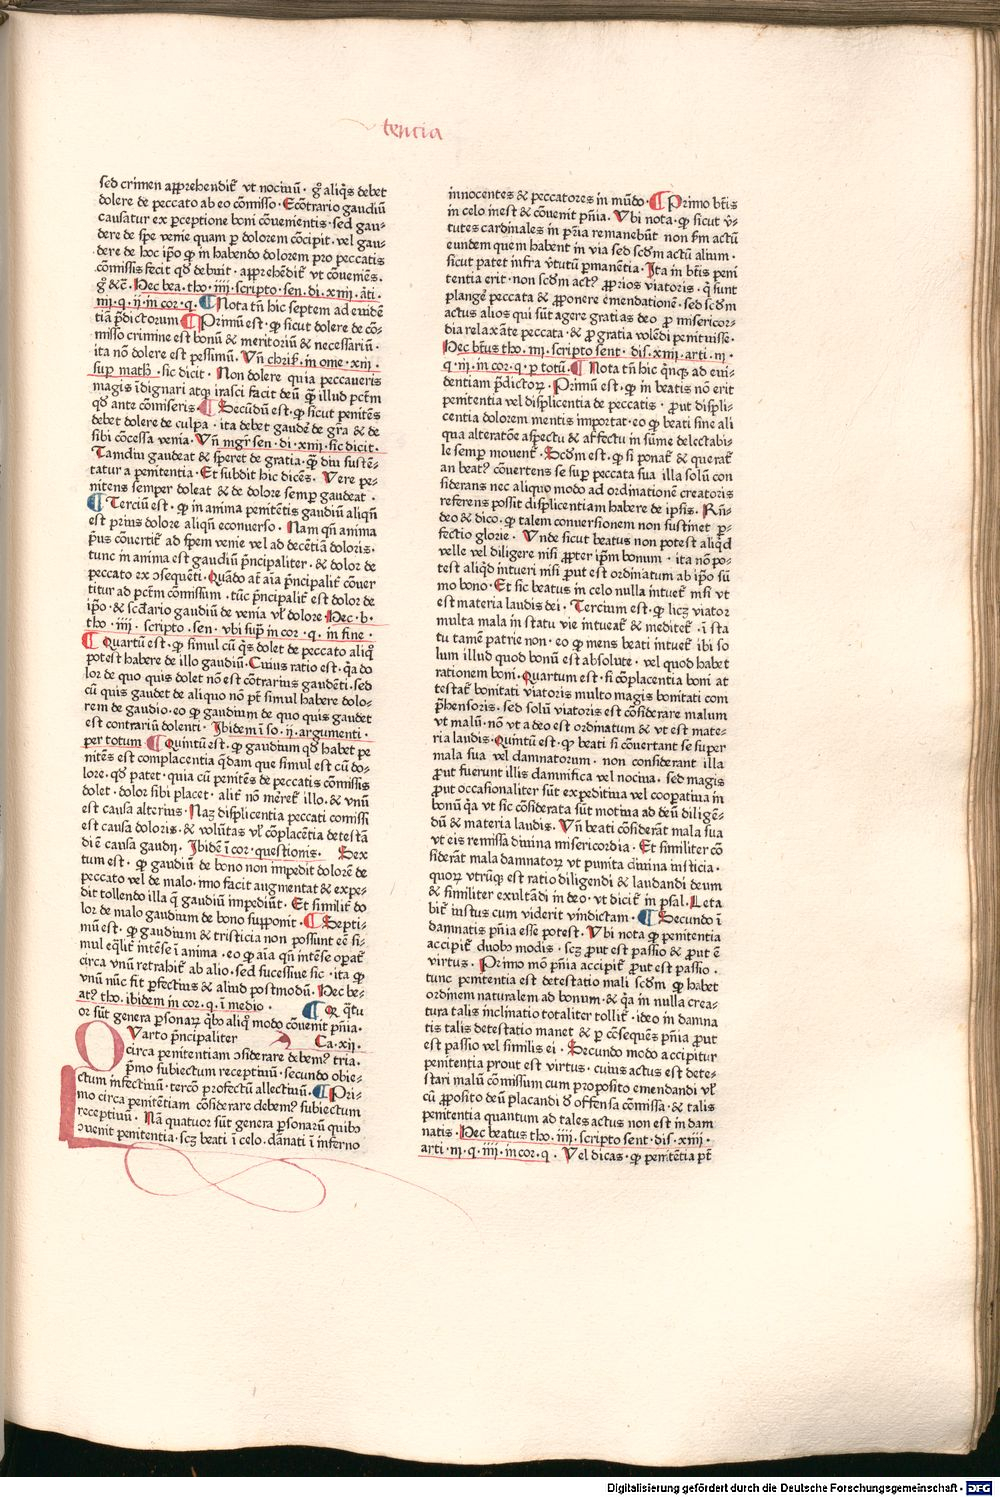 tencia
sed crimen apprehendit̃ vt nociuũ · gͦ aliq̃s debet
dolere de peccato ab eo cõmisso · Ecõtrario gaudiũ
causatur ex p̲ceptione boni cõuenientis · sed gau⸗
dere de spe venie quam p̲ dolorem cõcipit · vel gau⸗
dere de hoc ip̃o ꝙ in habendo dolorem pro peccatis
cõmissis fecit qď debuit · apprehẽdit̃ vt cõueniẽs ·
gͦ &c̃ · Hec bea · tho · iiii · scripto · sen · di · xiiii · ãti ·
iiii · q · ii · in cor · q · ¶ Nota tñ hic septem ad euidẽ
tiã p̃dictorum ¶ Primũ est · ꝙ sicut dolere de cõ⸗
misso crimine est bonũ & meritoriũ & necessariũ ·
ita nõ dolere est pessimũ · Vñ chris̃ · in ome · xiii ·
sup̲ math̃ · sic dicit · Non dolere quia peccaueris
magis ĩdignari atqꝫ irasci facit deũ q̃ illud pctm̃
qď ante cõmiseris ¶ Secũdũ est · ꝙ sicut penitẽs
debet dolere de culpa · ita debet gaudẽ de grã & de
sibi cõcessa venia · Vñ mgr̃ sen · di · xiiii · sic dicit ·
Tamdiu gaudeat & speret de gratia · q̃ diu sustẽ⸗
tatur a penitentia · Et subdit hic dicẽs · Vere pe⸗
nitens semper doleat & de dolore semp̲ gaudeat ·
¶ Terciũ est · ꝙ in anima penitẽtis gaudiũ aliqñ
est prius dolore aliqñ econuerso · Nam qñ anima
p̃us cõuertit̃ ad spem venie vel ad decẽtiã doloris ·
tunc in anima est gaudiũ p̃ncipaliter · & dolor de
peccato ex ↄsequẽti · Quãdo at̃ aĩa p̃ncipalit̃ cõuer
titur ad pctm̃ cõmissum · tũc p̃ncipalit̃ est dolor de
ip̃o · & scďario gaudiũ de venia vl̃ dolore · Hec · b ·
tho · iiii · scripto · sen · vbi sup̃ in cor · q · in fine ·
¶ Quartũ est · ꝙ simul cũ q̃s dolet de peccato aliq̊
potest habere de illo gaudiũ · Cuius ratio est · q̃a do
lor de quo quis dolet nõ est cõtrarius gaudẽti · sed
cũ quis gaudet de aliquo nõ pt̃ simul habere dolo⸗
rem de gaudio · eo ꝙ gaudium de quo quis gaudet
est contrariũ dolenti · Ibidem ĩ so · ii · argumenti ·
per totum ¶ Quintũ est · ꝙ gaudium qď habet pe
nitẽs est complacentia q̃dam que simul est cũ do⸗
lore · qď patet · quia cũ penitẽs de peccatis cõmissis
dolet · dolor sibi placet · alit̃ nõ meret̃ illo · & vnũ
est causa alterius · Naꝫ displicentia peccati comissi
est causa doloris · & volũtas vl̃ cõplacẽtia detestã
di ẽ causa gaudij · Ibidẽ ĩ cor · questionis · Sex
tum est · ꝙ gaudiũ de bono non impedit dolorẽ de
peccato vel de malo · imo facit augmentat & expe⸗
dit tollendo illa q̃ gaudiũ impediũt · Et similit̃ do
lor de malo gaudium de bono supponit · ¶ Septi⸗
mũ est · ꝙ gaudium & tristicia non possunt eẽ si⸗
mul eq̃lit̃ intẽse ĩ anima · eo ꝙ aĩa qñ intẽse opat̃
circa vnũ retrahit̃ ab alio · sed sucessiue sic · ita ꝙ
vnũ nũc fit p̲fectius & aliud postmodũ · Hec be⸗
atꝰ tho · ibidem in cor · q · ĩ medio · ¶ Qz q̃tu
or sũt genera p̲sonaꝝ q̃bꝰ aliq̊ modo cõuenit pñia ·
Quarto p̃ncipaliter Ca · xii ·
circa penitentiam ↄsiderare debemꝰ tria ·
p̃mo subiectum receptiuũ · secundo obie⸗
ctum infectiuũ · terco profectũ allectiuũ · ¶ Pri⸗
mo circa penitẽtiam cõsiderare debemꝰ subiectum
receptiuũ · Nã quatuor sũt genera p̲sonarũ quibꝰ
ↄuenit penitentia · scꝫ beati ĩ celo · dãnati ĩ inferno
innocentes & peccatores in mũdo · ¶ Primo bt̃is
in celo inest & cõuenit pñia · Vbi nota · ꝙ sicut v̾⸗
tutes cardinales in p̃ria remanebũt non fm̃ actũ
eundem quem habent in via sed scďm actũ alium ·
sicut patet infra v̾tutũ p̲manẽtia · Ita in bt̃is peni
tentia erit · non scďm actꝰ ꝓprios viatoris · q̃ sunt
plangẽ peccata & ꝓponere emendationẽ · sed scďm
actus alios qui sũt agere gratias deo ꝓ misericor⸗
dia relaxãte peccata · & ꝓ gratia volẽdi penituisse ·
Hec bt̃us tho · iiii · scripto sent · dis · xiiii · arti · iii ·
q · iii · in cor · q · p̲ totũ · ¶ Nota tñ hic q̃nqꝫ ad eui⸗
dentiam p̃dictoꝝ · Primũ est · ꝙ in beatis nõ erit
penitentia vel displicentia de peccatis · ꝓut displi⸗
centia dolorem mentis importat · eo ꝙ beati sine ali
qua alteratõne aspectu & affectu in sũme delectabi⸗
le semp̲ mouent̃ · Scďm est · ꝙ si ponat̃ & querat̃
an beatꝰ cõuertens se sup̲ peccata sua illa solũ con
siderans nec aliquo modo ad ordinationẽ creatoris
referens possit displicentiam habere de ipsis · Rñ⸗
deo & dico · ꝙ talem conuersionem non sustinet p̲⸗
fectio glorie · Vnde sicut beatus non potest aliq̃d
velle vel diligere nisi ꝓpter ip̃m bonum · ita nõ po⸗
test aliq̃d intueri nisi ꝓut est ordinatum ab ip̃o sũ
mo bono · Et sic beatus in celo nulla intuet̃ nisi vt
est materia laudis dei · Tercium est · ꝙ licꝫ viator
multa mala in statu vie intueat̃ & meditet̃ · ĩ sta
tu tamẽ patrie non · eo ꝙ mens beati intuet̃ ibi so
lum illud quod bonũ est absolute · vel quod habet
rationem boni · Quartum est · si cõplacentia boni at
testat̃ bonitati viatoris multo magis bonitati com
p̃hensoris · sed solũ viatoris est cõsiderare malum
vt malũ · nõ vt a deo est ordinatum & vt est mate⸗
ria laudis · Quintũ est · ꝙ beati si cõuertant se super
mala sua vel damnatorum · non considerant illa
ꝓut fuerunt illis damnifica vel nociua · sed magis
ꝓut occasionaliter sũt expeditiua vel coopatiua in
bonũ q̃a vt sic cõsiderata sũt motiua ad deũ diligẽ⸗
dũ & materia laudis · Vñ beati cõsiderãt mala sua
vt eis remissa diuina misericordia · Et similiter cõ
siderãt mala damnatoꝝ vt punita diuina iusticia ·
quoꝝ vtrũqꝫ est ratio diligendi & laudandi deum
& similiter exultãdi in deo · vt dicit̃ in psal · Leta
bit̃ iustus cum viderit vindictam · ¶ Secundo ĩ
damnatis pñia esse potest · Vbi nota ꝙ penitentia
accipit̃ duobꝰ modis · scꝫ ꝓut est passio & ꝓut ẽ
virtus · Primo mõ pñia accipit̃ ꝓut est passio ·
tunc penitentia est detestatio mali scďm ꝙ habet
ordinem naturalem ad bonum · & q̃a in nulla crea⸗
tura talis inclinatio totaliter tollit̃ · ideo in damna
tis talis detestatio manet & p̲ cõsequẽs pñia ꝓut
est passio vel similis ei · Secundo modo accipitur
penitentia prout est virtus · cuius actus est dete⸗
stari malũ cõmissum cum proposito emendandi vl̃
cũ ꝓposito deũ placandi ď offensa cõmissa · & talis
penitentia quantum ad tales actus non est in dam
natis · Hec beatus tho · iiii · scripto sent · dis · xiiii ·
arti · iii · q · iiii · in cor · q · Vel dicas · ꝙ penitẽtia pt̃
Digitalisierung gefördert durch die Deutsche Forschungsgemeinschaft - DFG